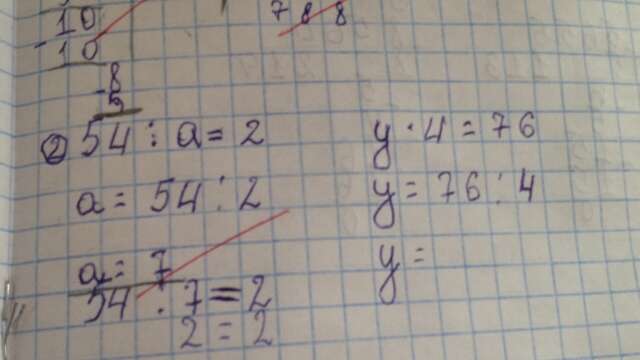 10
- 10
7 8 8
- 8
② 54 : a = 2
a = 54 : 2
a = 7
54 : 7 = 2
2 = 2
y · 4 = 76
y = 76 : 4
y =